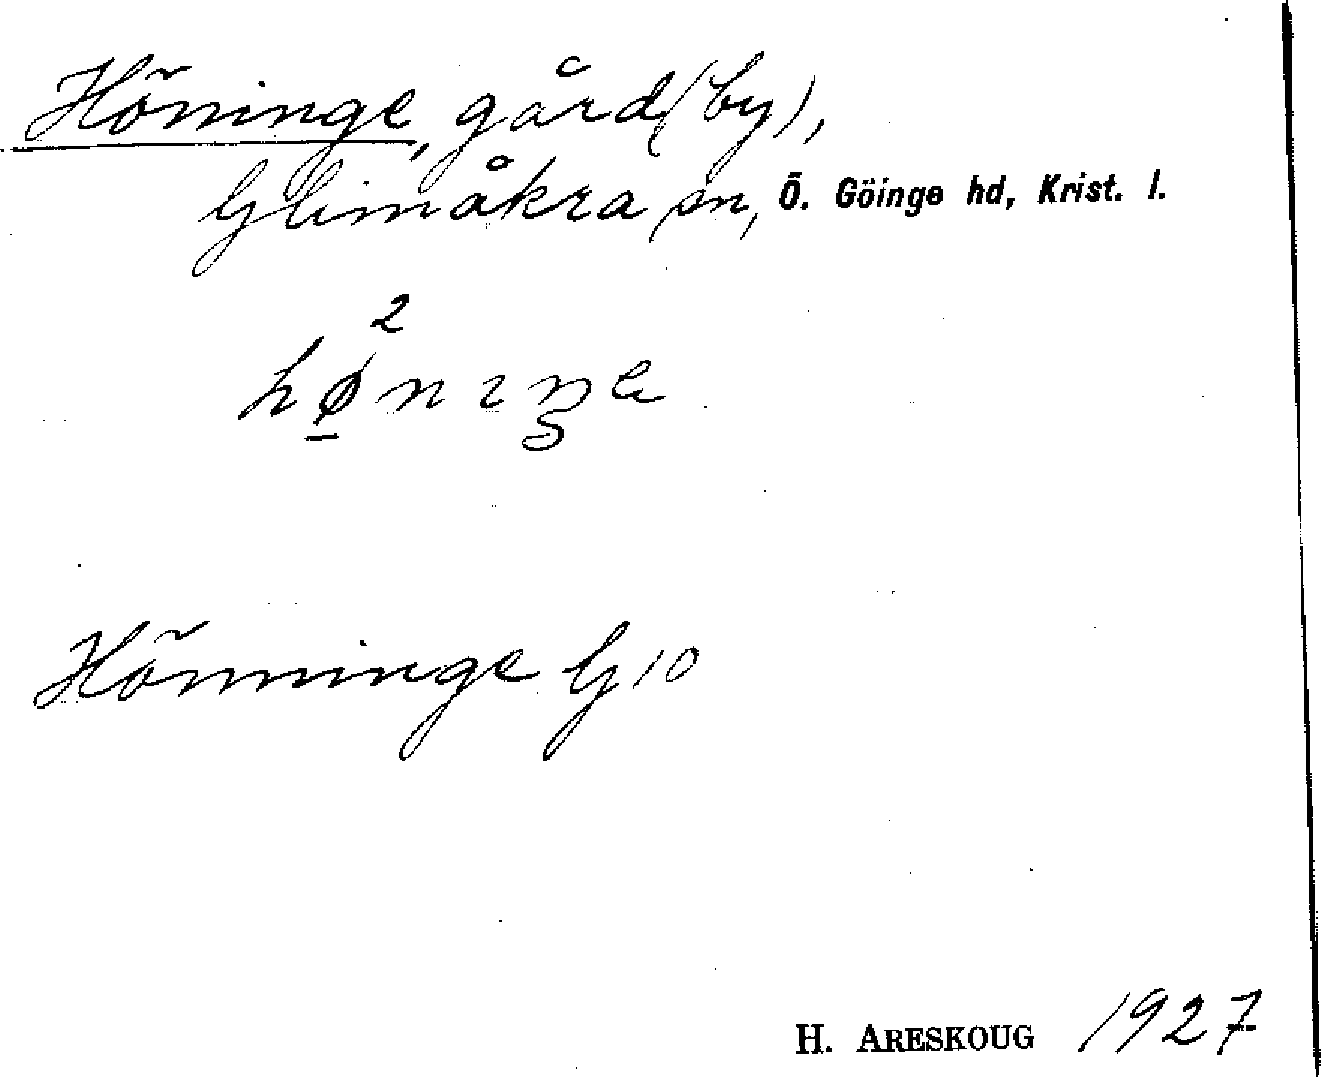 Höninge, gård (by),
Glimåkra sn, Ö. Göinge hd, Krist. l.
2
hø̱nıŋe
Hönninge G10
H. ARESKOUG 1927